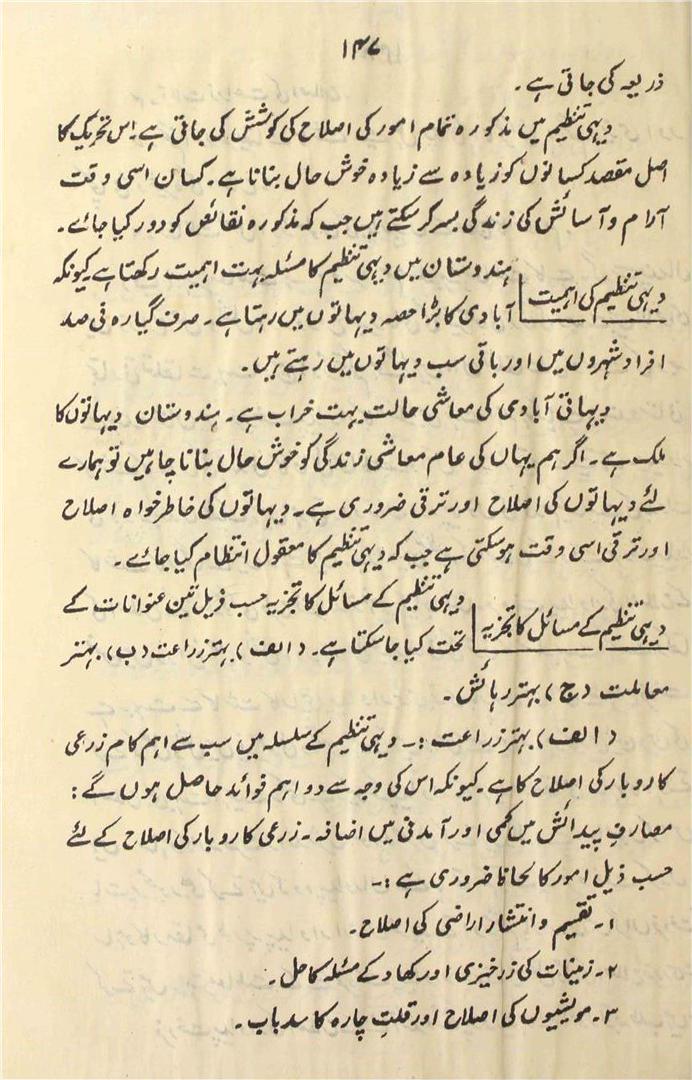 ۱۴۷
ذریعہ کی جاتی ہے۔
دیہی تنظیم میں مذکورہ تمام امور کی اصلاح کی کوشش کی جاتی ہے۔ اس تحریک کا
اصل مقصد کسانوں کو زیادہ سے زیادہ خوش حال بنانا ہے۔ کسان اسی وقت
آرام و آسائش کی زندگی بسر کر سکتے ہیں جب کہ مذکورہ نقائص کو دور کیا جائے۔
دیہی تنظیم کی اہمیت
ہندوستان میں دیہی تنظیم کا مسئلہ بہت اہمیت رکھتا ہے کیونکہ
آبادی کا بڑا حصہ دیہاتوں میں رہتا ہے۔ صرف گیارہ فی صد
افراد شہروں میں اور باقی سب دیہاتوں میں رہتے ہیں۔
دیہاتی آبادی کی معاشی حالت بہت خراب ہے۔ ہندوستان دیہاتوں کا
ملک ہے۔ اگر ہم یہاں کی عام معاشی زندگی کو خوش حال بنانا چاہیں تو ہمارے
لئے دیہاتوں کی اصلاح اور ترقی ضروری ہے۔ دیہاتوں کی خاطر خواہ اصلاح
اور ترقی اسی وقت ہو سکتی ہے جب کہ دیہی تنظیم کا معقول انتظام کیا جائے۔
دیہی تنظیم کے مسائل کا تجزیہ
دیہی تنظیم کے مسائل کا تجزیہ حسب ذیل تین عنوانات کے
تحت کیا جا سکتا ہے۔ (الف) بہتر زراعت (ب) بہتر
معاملت (ج) بہتر رہائش۔
(الف) بہتر زراعت :۔ دیہی تنظیم کے سلسلہ میں سب سے اہم کام زرعی
کاروبار کی اصلاح کا ہے۔ کیونکہ اس کی وجہ سے دو اہم فوائد حاصل ہوں گے :
مصارفِ پیدائش میں کمی اور آمدنی میں اضافہ۔ زرعی کاروبار کی اصلاح کے لئے
حسب ذیل امور کا لحاظ ضروری ہے :۔
۱۔ تقسیم و انتشار اراضی کی اصلاح۔
۲۔ زمینات کی زرخیزی اور کھاد کے مسئلہ کا حل۔
۳۔ مویشیوں کی اصلاح اور قلتِ چارہ کا سد باب۔